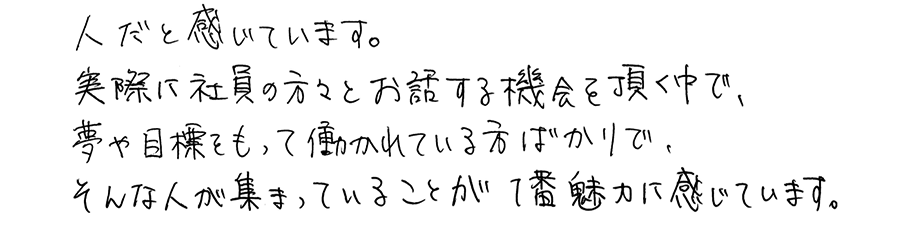 人だと感じています。
実際に社員の方々とお話する機会を頂く中で、
夢や目標をもって働かれている方ばかりで、
そんな人が集まっていることが1番魅力に感じています。